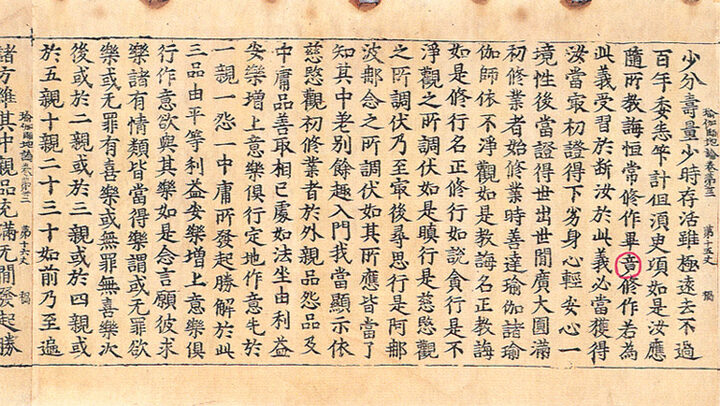 瑜伽師地論
少分壽量少時存活雖極遠去不過
百年委悉筭計但須臾頃如是汝應
隨所教誨恒常修作畢竟修作若為
此義受習於斷汝於此義必當獲得
汝當最初證得下劣身心輕安心一
境性後當證得世出世間廣大圓滿
初修業者始修業時善達瑜伽諸瑜
伽師依不淨觀如是教誨名正教誨
如是修行名正修行如說貪行是不
淨觀之所調伏如是瞋行是慈愍觀
之所調伏乃至最後尋思行是阿那
波那念之所調伏如其所應皆當了
知其中差別餘趣入門我當顯示依
慈愍觀初修業者於外親品怨品及
中庸品善取相已處如法坐由利益
安樂增上意樂俱行定地作意先於
一親一怨一中庸所發起勝解於此
三品由平等利益安樂增上意樂俱
行作意欲與其樂如是念言願彼求
樂諸有情類皆當得樂謂或无罪欲
樂或无罪有喜樂或無罪無喜樂次
後或於二親或於三親或於四親或
於五親十親二十三十如前乃至遍
瑜伽師地論
諸方維其中親品充滿无間發起勝